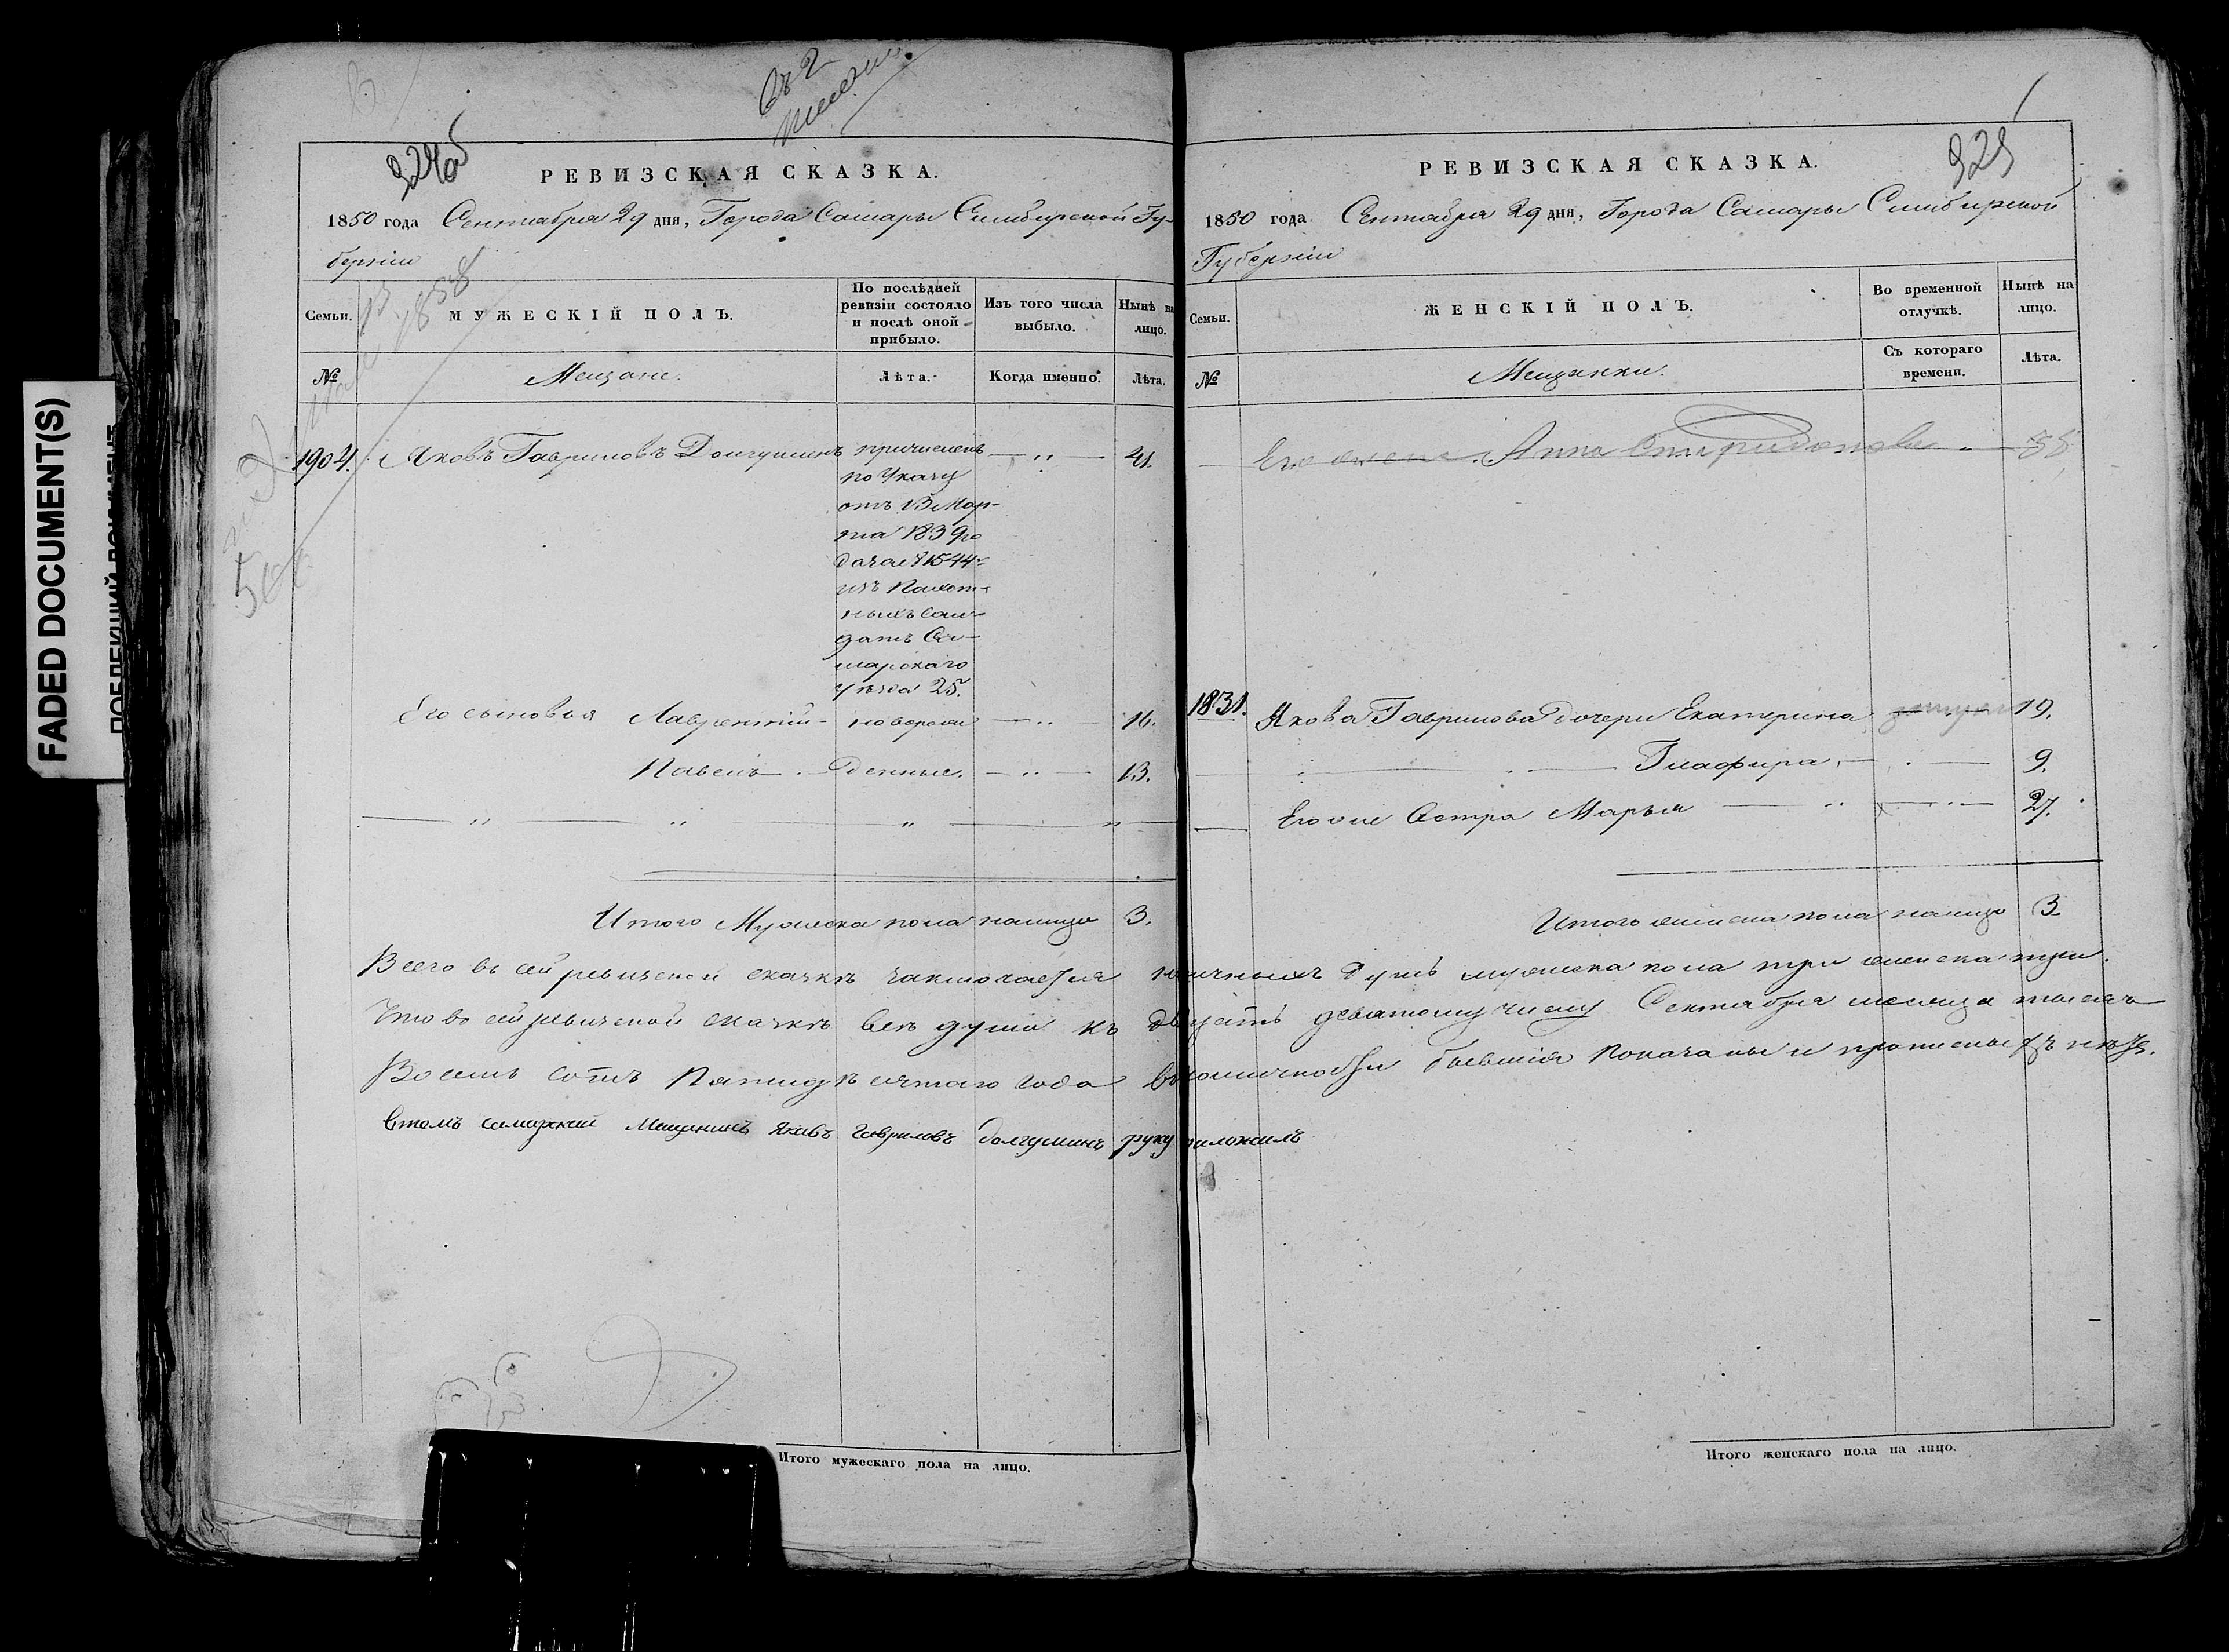 FADED DOCUMENT(S)
въ 2
324об
РЕВИЗСКАЯ СКАЗКА.
1850 года Сентября 29 дня, Города Самары Симбирской Гу-
берніи
1858
Семьи.
МУЖЕСКІЙ ПОЛЪ.
По послѣдней ревизіи состояло и послѣ оной прибыло.
Изъ того числа выбыло.
Нынѣ на лицо.
№
Мещане.
Лѣта.
Когда именно.
Лѣта.
1904. Яковъ Гавриловъ Долгушинъ причисленъ — " — 41.
по Указу
отъ 13 Мар-
та 1839 го
да за № 1544
изъ Пахот-
ныхъ Сол-
датъ Са-
марскаго
уѣзда 25.
Его сыновья Лаврентій новорож — " — 16.
Павелъ — денные. — " — 13.
— " — " — " — " —
Итого Мужеска пола налицо 3.
325
РЕВИЗСКАЯ СКАЗКА.
1850 года Сентября 29 дня, Города Самары Симбирской
Губерніи
Семьи.
ЖЕНСКІЙ ПОЛЪ.
Во временной отлучкѣ.
Нынѣ на лицо.
№
Мещанки.
Съ котораго времени.
Лѣта.
— Его жена Анна Спиридонова —
1831. Якова Гаврилова дочери Екатерина 19.
Глафира — 9.
— Его же Сестра Марья — " — 27.
Итого женска пола налицо 3
Всего въ сей ревизской сказкѣ заключается наличныхъ душъ мужеска пола три женска три.
Что въ сей ревизской сказкѣ всѣ души къ двадцать девятому числу Сентября месяца тысяча
Восемь сотъ Пятидѣсятаго года въ наличности бывшія показаны и прописных нѣтъ.
Втомъ самарский Мещанинъ Яковъ Гавриловъ долгушинъ руку приложилъ
Итого мужескаго пола на лицо.
Итого женскаго пола на лицо.